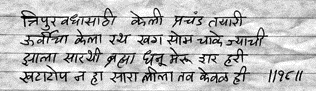 त्रिपुरवधासाठी केली प्रचंड तयारी
ऊर्वीचा केला रथ खग सोम चाके ज्याची
झाला सारथी ब्रह्मा धनू मेरू शर हरी
खटाटोप न हा सारा लीला तव केवळ ही ॥१८॥